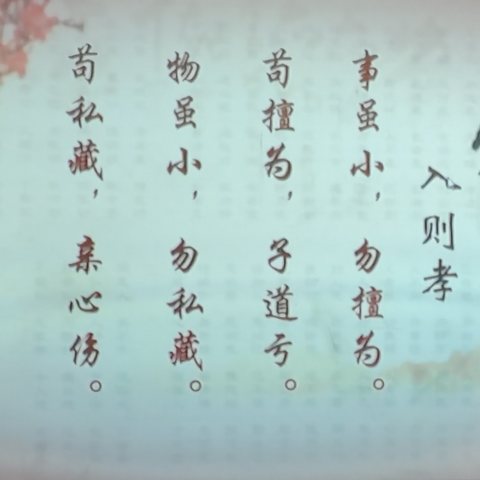 入则孝
事虽小，勿擅为。
苟擅为，子道亏。
物虽小，勿私藏。
苟私藏，亲心伤。